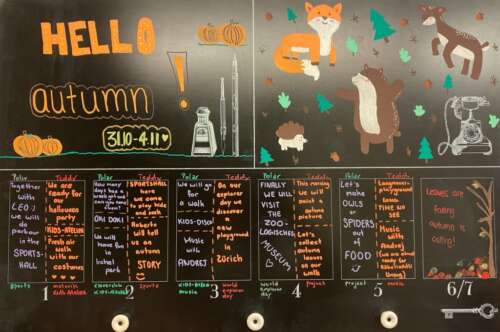 HELLO
autumn!
31.10-4.11
Polar
Together
with
LEO:
we will
do
parkour
in the
SPORTS-
HALL
Sports
Teddy
We are
ready for
our
halloween
party
KIDS-ATELIER
Fresh air
walk with
our
costumes
1
Polar
How many
days has a
OKI DOKI
We will
have fun
in
Irchel
park
Teddy
SPORTSHALL
here
we come
to play
hide and
seek
Roberto
will tell
us an
autumn
STORY
sports
2
Polar
We will go
for
a walk
KIDS-DISCO
Music
with
ANDREJ
music
Teddy
On our
explorer
day we
discover
a
new
playground
in
Zürich
world
explorer
day
3
Polar
FINALLY
WE WILL
VISIT
THE
ZOO-
LOGISCHES
MUSEUM
world
explorer
day
Teddy
This morning
we will
paint a
autumn
picture
Let's
collect
autumn
leaves
at our
walk
project
4
Polar
Let's
make
OWLS
or
SPIDERS
out
of
FOOD
project
Teddy
background
LEARN
TIME AN
SEE
Music
with
Andrej
(we are
already
ready for
Räbeliechtli
Umzug)
music
5
LEAVES ARE
falling
autumn is
calling!
6/7